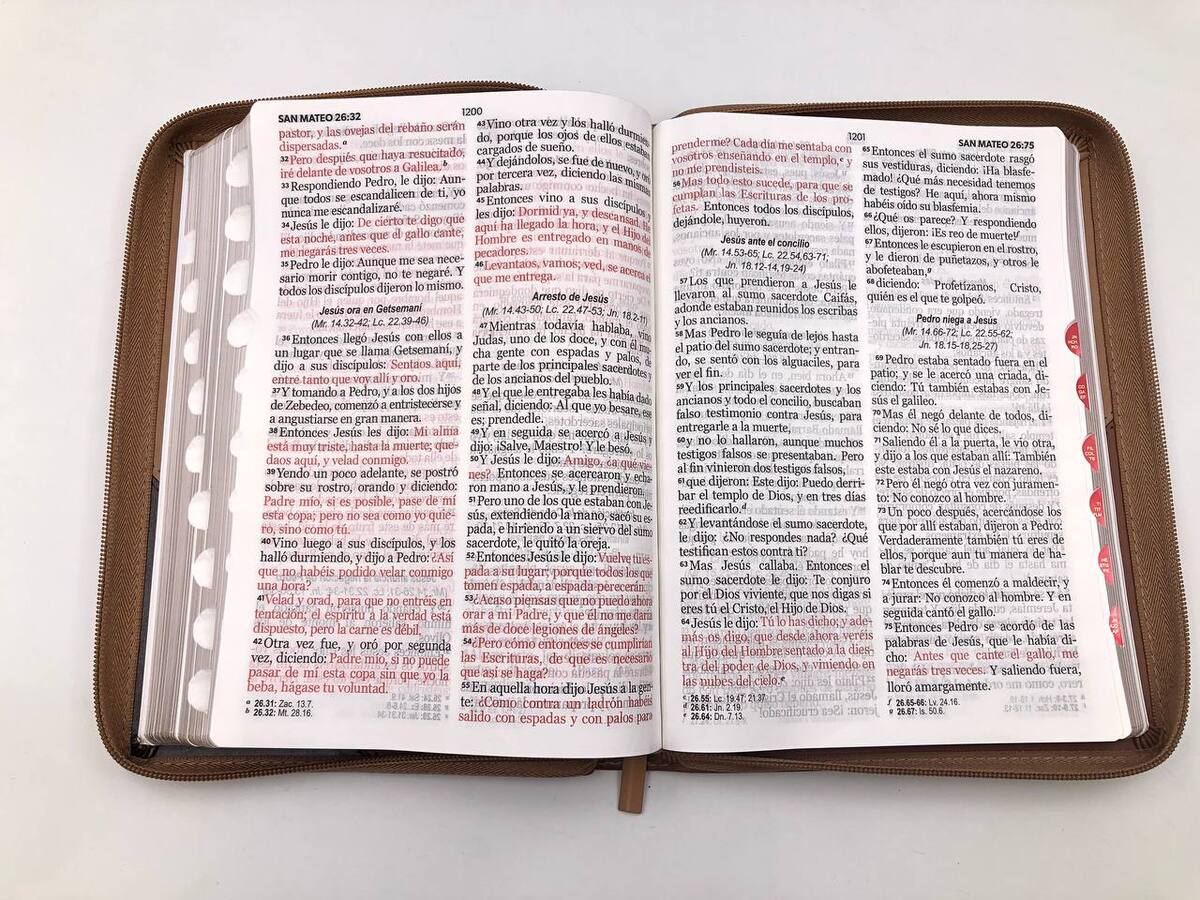 SAN MATEO 26:32
1200
pastor, y las ovejas del rebaño serán
dispersadas.a
32 Pero después que haya resucitado,
iré delante de vosotros a Galilea.b
33 Respondiendo Pedro, le dijo: Aun-
que todos se escandalicen de ti, yo
nunca me escandalizaré.
34 Jesús le dijo: De cierto te digo que
esta noche, antes que el gallo cante,
me negarás tres veces.
35 Pedro le dijo: Aunque me sea nece-
sario morir contigo, no te negaré. Y
todos los discípulos dijeron lo mismo.
Jesús ora en Getsemaní
(Mr. 14.32-42; Lc. 22.39-46)
36 Entonces llegó Jesús con ellos a
un lugar que se llama Getsemaní, y
dijo a sus discípulos: Sentaos aquí,
entre tanto que voy allí y oro.
37 Y tomando a Pedro, y a los dos hijos
de Zebedeo, comenzó a entristecerse y
a angustiarse en gran manera.
38 Entonces Jesús les dijo: Mi alma
está muy triste, hasta la muerte; que-
daos aquí, y velad conmigo.
39 Yendo un poco adelante, se postró
sobre su rostro, orando y diciendo:
Padre mío, si es posible, pase de mí
esta copa; pero no sea como yo quie-
ro, sino como tú.
40 Vino luego a sus discípulos, y los
halló durmiendo, y dijo a Pedro: ¿Así
que no habéis podido velar conmigo
una hora?
41 Velad y orad, para que no entréis en
tentación; el espíritu a la verdad está
dispuesto, pero la carne es débil.
42 Otra vez fue, y oró por segunda
vez, diciendo: Padre mío, si no puede
pasar de mí esta copa sin que yo la
beba, hágase tu voluntad.
a 26.31: Zac. 13.7.
b 26.32: Mt. 28.16.
43 Vino otra vez y los halló durmien-
do, porque los ojos de ellos estaban
cargados de sueño.
44 Y dejándolos, se fue de nuevo, y oró
por tercera vez, diciendo las mismas
palabras.
45 Entonces vino a sus discípulos y
les dijo: Dormid ya, y descansad. He
aquí ha llegado la hora, y el Hijo del
Hombre es entregado en manos de
pecadores.
46 Levantaos, vamos; ved, se acerca el
que me entrega.
Arresto de Jesús
(Mr. 14.43-50; Lc. 22.47-53; Jn. 18.2-11)
47 Mientras todavía hablaba, vino
Judas, uno de los doce, y con él mu-
cha gente con espadas y palos, de
parte de los principales sacerdotes y
de los ancianos del pueblo.
48 Y el que le entregaba les había dado
señal, diciendo: Al que yo besare, ese
es; prendedle.
49 Y en seguida se acercó a Jesús y
dijo: ¡Salve, Maestro! Y le besó.
50 Y Jesús le dijo: Amigo, ¿a qué vie-
nes? Entonces se acercaron y echa-
ron mano a Jesús, y le prendieron.
51 Pero uno de los que estaban con Je-
sús, extendiendo la mano, sacó su es-
pada, e hiriendo a un siervo del sumo
sacerdote, le quitó la oreja.
52 Entonces Jesús le dijo: Vuelve tu es-
pada a su lugar; porque todos los que
tomen espada, a espada perecerán.
53 ¿Acaso piensas que no puedo ahora
orar a mi Padre, y que él no me daría
más de doce legiones de ángeles?
54 ¿Pero cómo entonces se cumplirían
las Escrituras, de que es necesario
que así se haga?
55 En aquella hora dijo Jesús a la gen-
te: ¿Como contra un ladrón habéis
salido con espadas y con palos para
1201
SAN MATEO 26:75
prenderme? Cada día me sentaba con
vosotros enseñando en el templo,c y
no me prendisteis.
56 Mas todo esto sucede, para que se
cumplan las Escrituras de los pro-
fetas. Entonces todos los discípulos,
dejándole, huyeron.
Jesús ante el concilio
(Mr. 14.53-65; Lc. 22.54,63-71,
Jn. 18.12-14,19-24)
57 Los que prendieron a Jesús le
llevaron al sumo sacerdote Caifás,
adonde estaban reunidos los escribas
y los ancianos.
58 Mas Pedro le seguía de lejos hasta
el patio del sumo sacerdote; y entran-
do, se sentó con los alguaciles, para
ver el fin.
59 Y los principales sacerdotes y los
ancianos y todo el concilio, buscaban
falso testimonio contra Jesús, para
entregarle a la muerte,
60 y no lo hallaron, aunque muchos
testigos falsos se presentaban. Pero
al fin vinieron dos testigos falsos,
61 que dijeron: Este dijo: Puedo derri-
bar el templo de Dios, y en tres días
reedificarlo.d
62 Y levantándose el sumo sacerdote,
le dijo: ¿No respondes nada? ¿Qué
testifican estos contra ti?
63 Mas Jesús callaba. Entonces el
sumo sacerdote le dijo: Te conjuro
por el Dios viviente, que nos digas si
eres tú el Cristo, el Hijo de Dios.
64 Jesús le dijo: Tú lo has dicho; y ade-
más os digo, que desde ahora veréis
al Hijo del Hombre sentado a la dies-
tra del poder de Dios, y viniendo en
las nubes del cielo.e
c 26.55: Lc. 19.47; 21.37.
d 26.61: Jn. 2.19
e 26.64: Dn. 7.13.
65 Entonces el sumo sacerdote rasgó
sus vestiduras, diciendo: ¡Ha blasfe-
mado! ¿Qué más necesidad tenemos
de testigos? He aquí, ahora mismo
habéis oído su blasfemia.
66 ¿Qué os parece? Y respondiendo
ellos, dijeron: ¡Es reo de muerte!f
67 Entonces le escupieron en el rostro,
y le dieron de puñetazos, y otros le
abofeteaban,g
68 diciendo: Profetízanos, Cristo,
quién es el que te golpeó.
Pedro niega a Jesús
(Mr. 14.66-72; Lc. 22.55-62;
Jn. 18.15-18,25-27)
69 Pedro estaba sentado fuera en el
patio; y se le acercó una criada, di-
ciendo: Tú también estabas con Je-
sús el galileo.
70 Mas él negó delante de todos, di-
ciendo: No sé lo que dices.
71 Saliendo él a la puerta, le vio otra,
y dijo a los que estaban allí: También
este estaba con Jesús el nazareno.
72 Pero él negó otra vez con juramen-
to: No conozco al hombre.
73 Un poco después, acercándose los
que por allí estaban, dijeron a Pedro:
Verdaderamente también tú eres de
ellos, porque aun tu manera de ha-
blar te descubre.
74 Entonces él comenzó a maldecir, y
a jurar: No conozco al hombre. Y en
seguida cantó el gallo.
75 Entonces Pedro se acordó de las
palabras de Jesús, que le había di-
cho: Antes que cante el gallo, me
negarás tres veces. Y saliendo fuera,
lloró amargamente.
f 26.65-66: Lv. 24.16.
g 26.67: Is. 50.6.